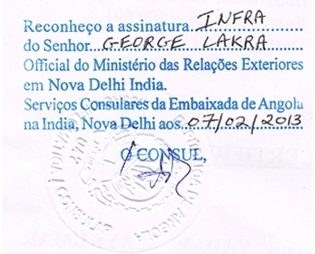 Reconheço a assinatura INFRA
do Senhor GEORGE LAKRA
Official do Ministério das Relações Exteriores
em Nova Delhi India.
Serviços Consulares da Embaixada de Angola
na India, Nova Delhi aos 07/02/2013
O CONSUL,